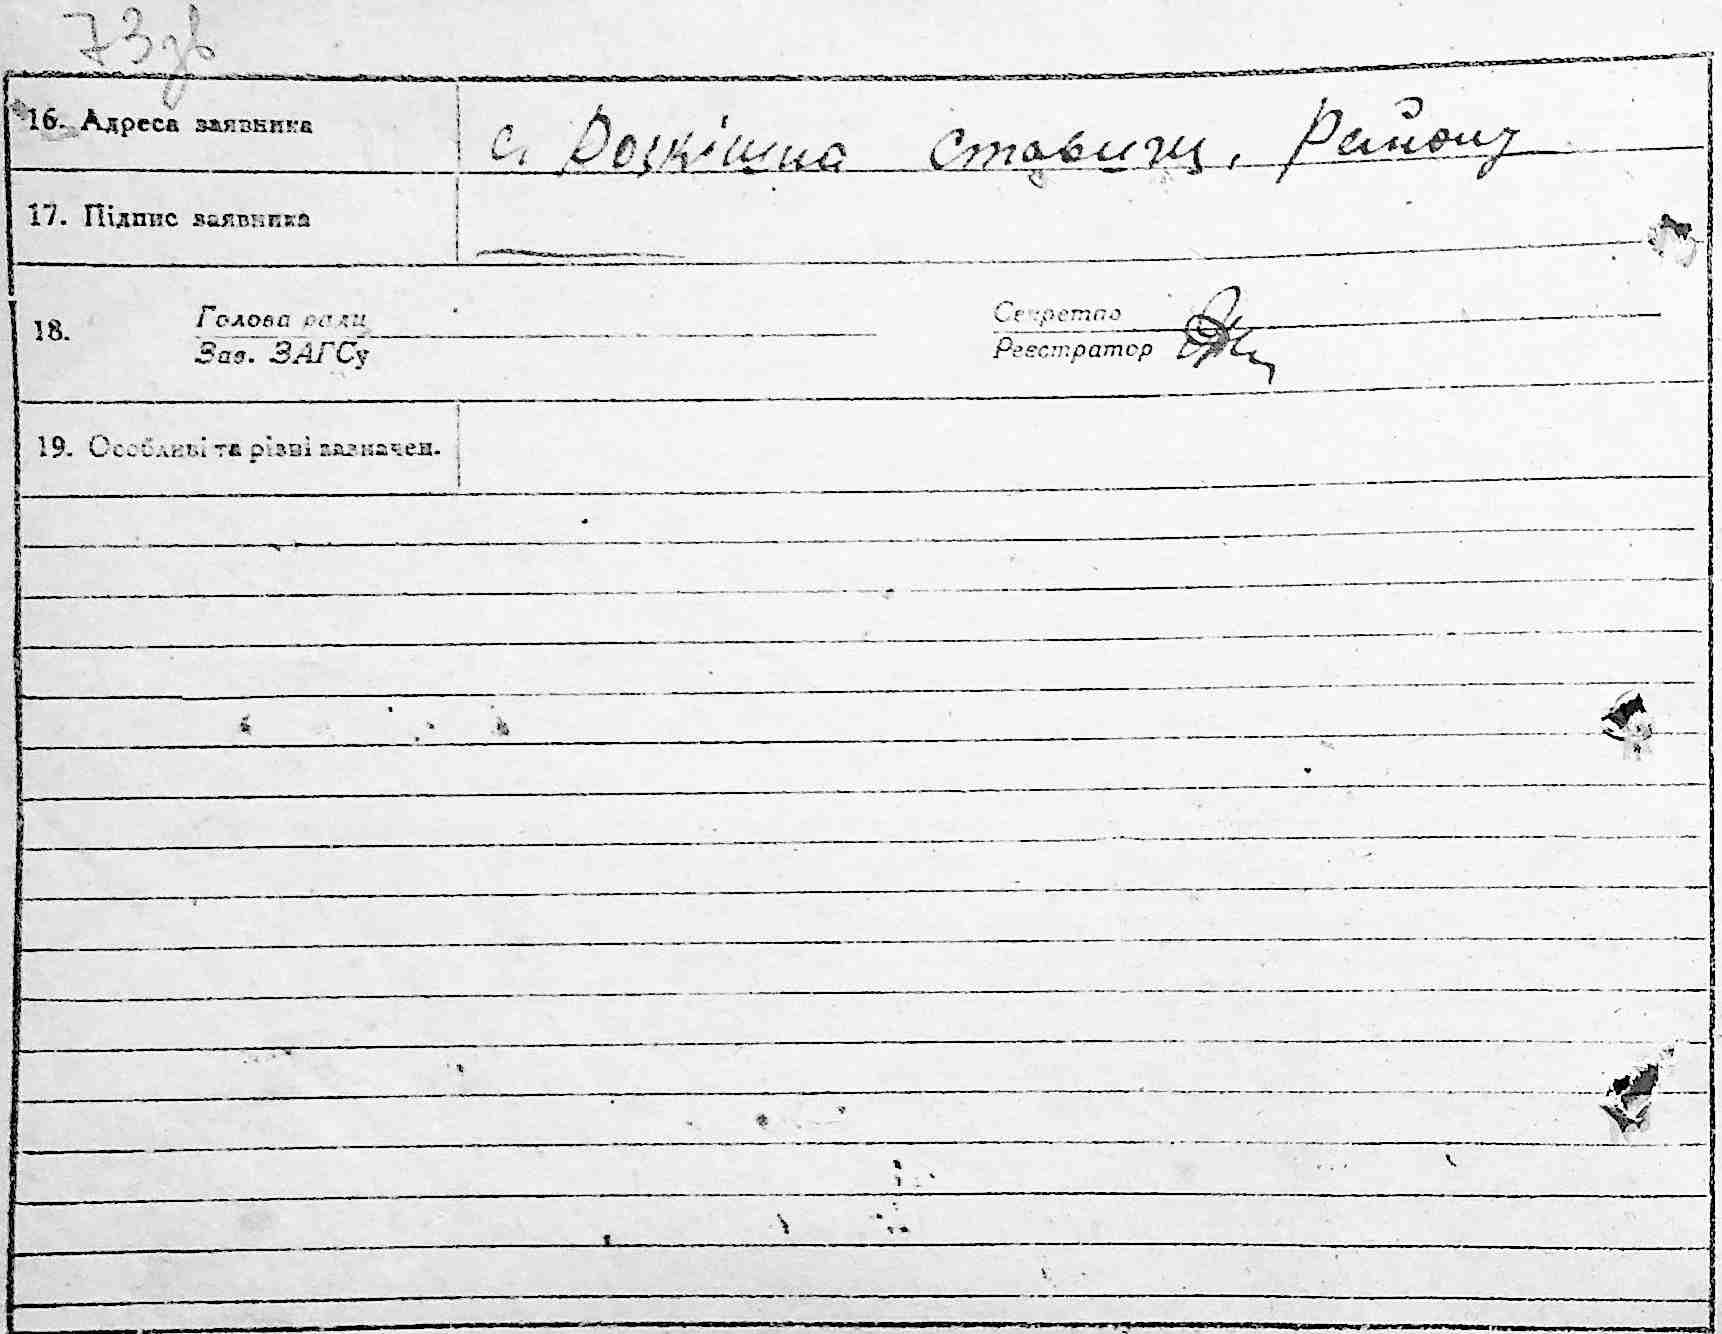 73зв
16. Адреса заявника с. Розкішна Ставищ. Району
17. Підпис заявника
Голова ради Секретар
18.
Зав. ЗАГСу Реєстратор
19. Особливі та різні зазначен.